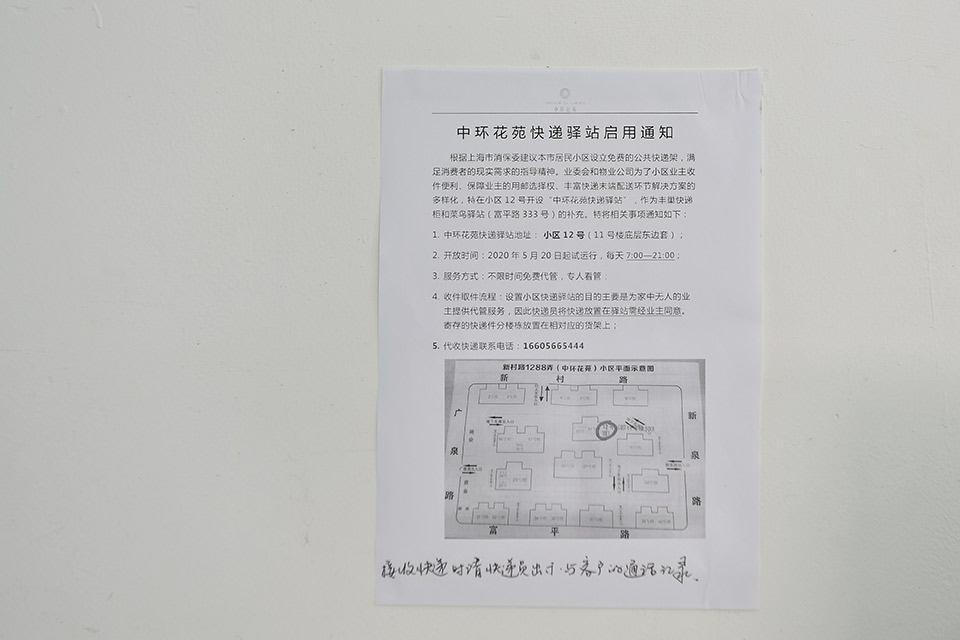 中环花苑快递驿站启用通知
根据上海市消保委建议本市居民小区设立免费的公共快递架，满
足消费者的现实需求的指导精神。业委会和物业公司为了小区业主收
件便利、保障业主的用邮选择权、丰富快递末端配送环节解决方案的
多样化，特在小区 12 号开设“中环花苑快递驿站”，作为丰巢快递
柜和菜鸟驿站（富平路 333 号）的补充。特将相关事项通知如下：
1. 中环花苑快递驿站地址： 小区 12 号（11 号楼底层东边套）；
2. 开放时间：2020 年 5 月 20 日起试运行，每天 7:00—21:00；
3. 服务方式：不限时间免费代管，专人看管；
4. 收件取件流程：设置小区快递驿站的目的主要是为家中无人的业
主提供代管服务，因此快递员将快递放置在驿站需经业主同意。
寄存的快递件分楼栋放置在相对应的货架上；
5. 代收快递联系电话：16605665444
新村路1288弄（中环花苑）小区平面示意图
新 村 路
广 泉 路
新 泉 路
富 平 路
接收快递时请快递员出示与客户的通话记录、